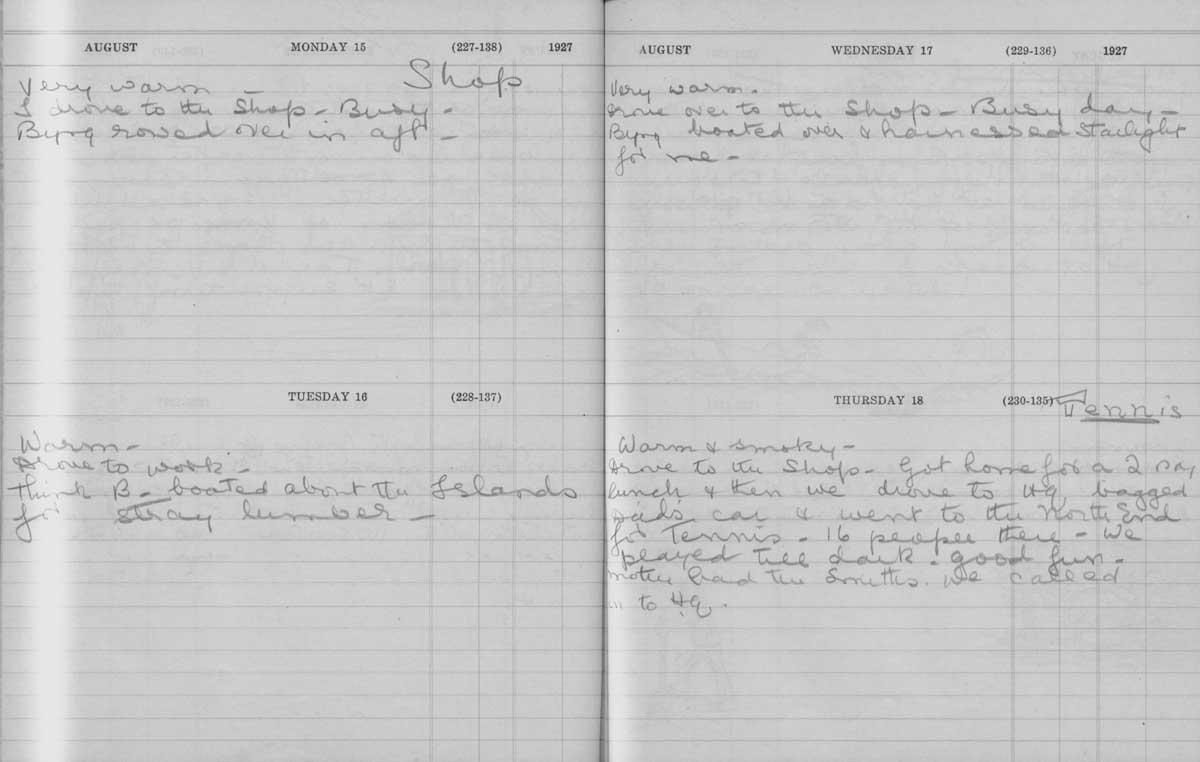 AUGUST MONDAY 15 (227-138) 1927
Shop
Very warm -
I drove to the Shop - Busy -
Byrq rowed over in aft -
TUESDAY 16 (228-137)
Warm -
Drove to work -
think B - boated about the Islands
for stray lumber -
AUGUST WEDNESDAY 17 (229-136) 1927
Very warm.
Drove over to the Shop - Busy day -
Byrq boated over & harnessed Starlight
for me -
THURSDAY 18 (230-135) Tennis
Warm & smoky -
Drove to the Shop - Got home for a 2
lunch & then we drove to HQ, bagged
car & went to the North End
for Tennis - 16 people there - We
played till dark - good fun -
mother had the Smiths. We called
in to HQ.